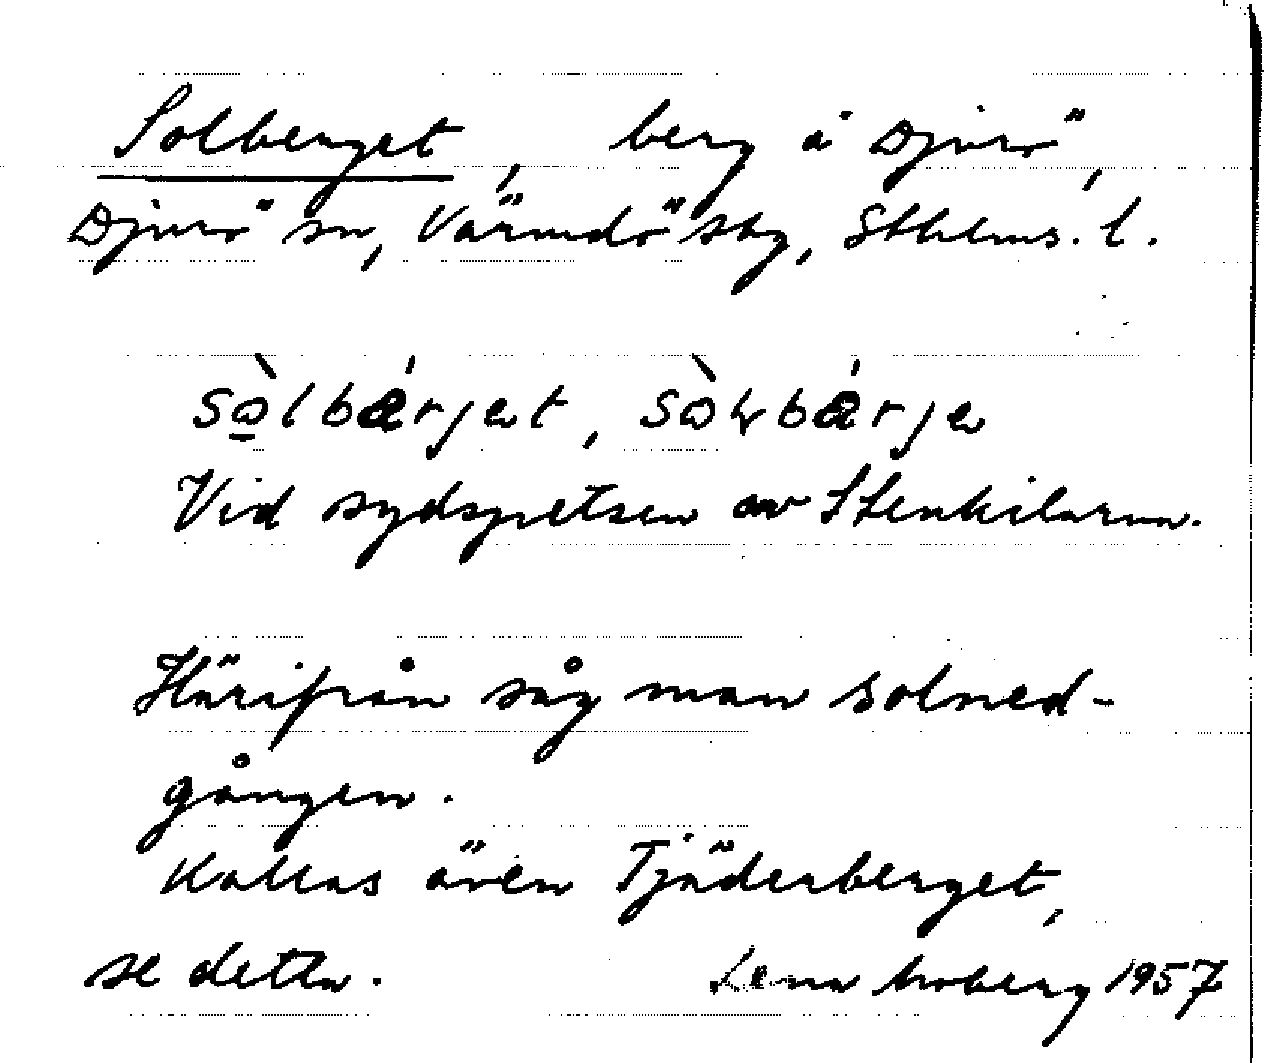 Solberget, berg å Djurö,
Djurö sn, Värmdö skg, Sthlms. l.
sὼlbǽrjet, sὼrbǽrje
Vid sydspetsen av Stenkilarna.
Härifrån såg man solned-
gången.
Kallas även Tjäderberget,
se detta. Lena Moberg 1957